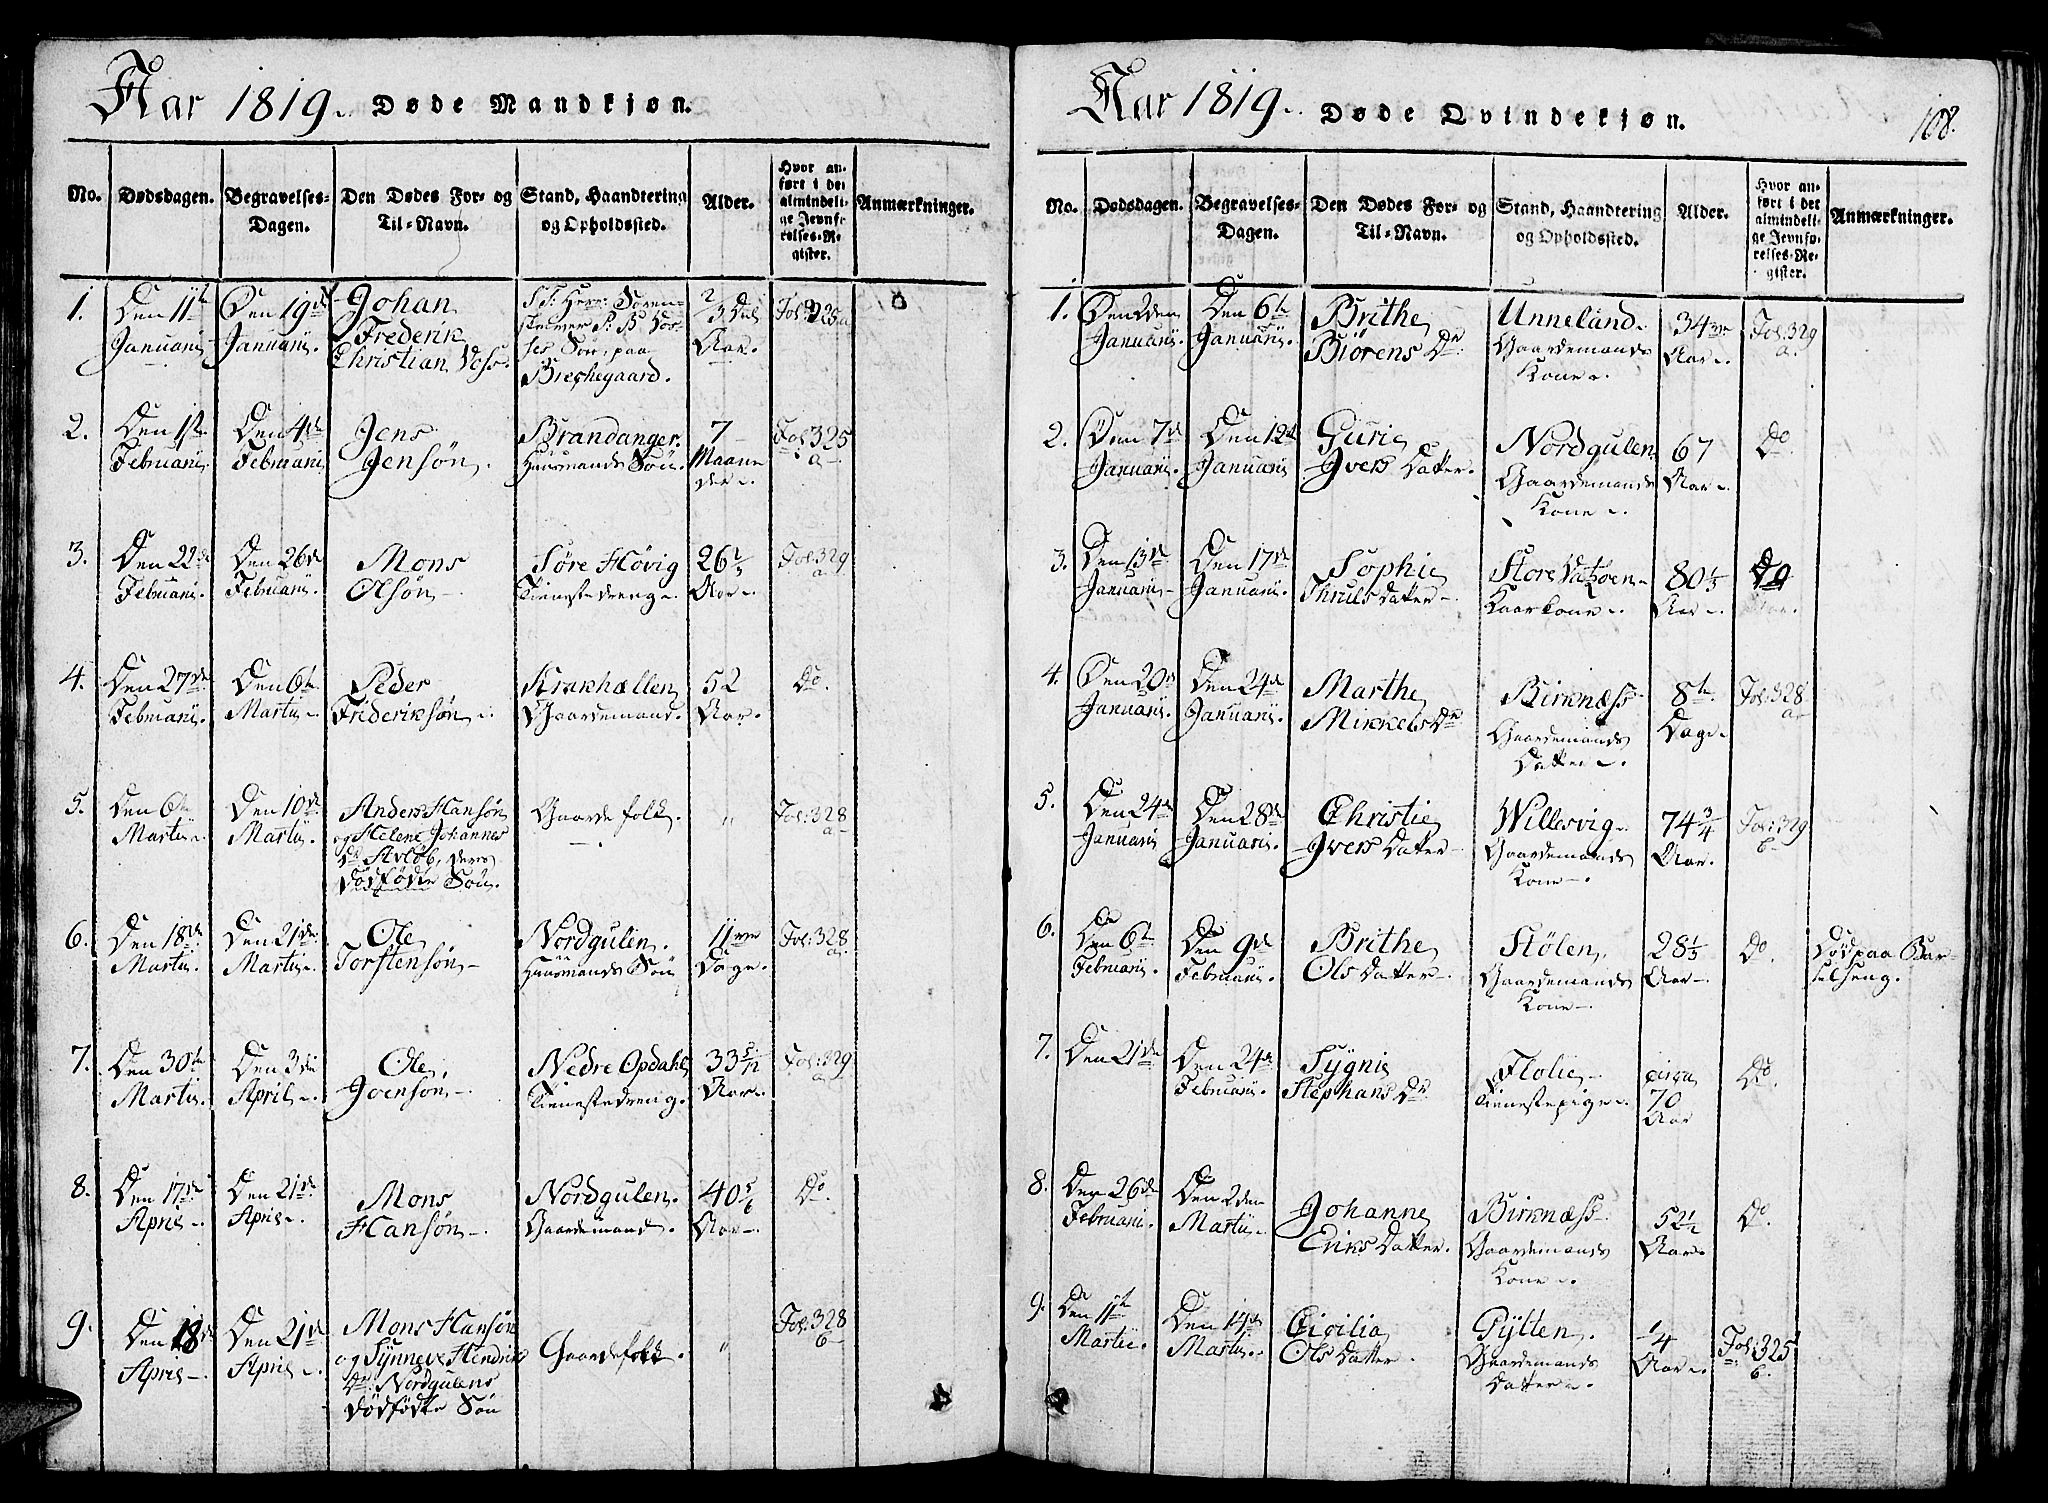 Aar 1819. Døde Mandkjøn.
No.
Dødsdagen.
Begravelses-
Dagen.
Den Dødes For- og
Til-Navn.
Stand, Haandtering
og Opholdssted.
Alder.
Hvor an-
ført i det
almindeli-
ge Jevnfø-
relses-Re-
gister.
Anmærkninger.
1.
Den 11te
Januarii
Den 19de
Januarii.
Johan
Frederik
Christian Voss.
S: T: Herr Soren-
skriver P: B: Vos-
ses Søn, paa
Brechegaard.
2/3 Dels
Aar.
Fol: 325
2.
Den 1ste
Februarii
Den 4de
Februarii
Jens
Jensøn.
Brandanger.
Huusmands Søn.
7
Maane
der.
Fol: 325
a
3.
Den 22de
Februarii.
Den 26de
Februarii.
Mons
Olsøn.
Søre Høvig
Tienestedreng.
26 1/3
Aar.
Fol: 329
a
4.
Den 27de
Februarii.
Den 6te
Martii.
Peder
Frideriksøn.
Krakhællen
Gaardemand.
52
Aar.
Do.
5.
Den 6te
Martii.
Den 10de
Martii.
Anders Hansøn
og Helene Johannes
Dr Avløb, deres
Dødfødte Søn.
Gaardefolk.
"
Fol: 328
a
6.
Den 18de
Martii.
Den 21de
Martii.
Ole
Torstensøn
Nordgulen.
Huusmands Søn
11ve
Dage.
Fol: 328
a.
7.
Den 30te
Martii.
Den 3die
April.
Ole
Joensøn.
Nedre Opdahl
Tienestedreng.
33 5/12
Aar.
Fol: 329
a
8.
Den 17de
April.
Den 21de
April.
Mons
Hansøn.
Nordgulen.
Gaardemand.
40 5/6
Aar.
Do.
9.
Den 18de
April.
Den 21de
April.
Mons Hansøn
og Synneve Hendriks
Dr Nordgulens
Dødfødte Søn
Gaardefolk.
"
Fol: 328
b
Aar 1819. Døde Qvindekjøn.
108.
No.
Dødsdagen.
Begravelses-
Dagen.
Den Dødes For- og
Til-Navn.
Stand, Haandtering
og Opholdssted.
Alder.
Hvor an-
ført i det
almindeli-
ge Jevnfø-
relses-Re-
gister.
Anmærkninger.
1.
Den 2den
Januarii.
Den 6te
Januarii.
Brithe
Biørens Dr.
Unneland.
Gaardemands
Kone.
34
Aar.
Fol: 329
a.
2.
Den 7de
Januarii.
Den 12te
Januarii
Gurie
Ivers Datter.
Nordgulen
Gaardemands
Kone.
67
Aar.
Do
3.
Den 13de
Januarii
Den 17de
Januarii.
Sophie
Thruls Datter.
Store Vatzøen
Kaarkone.
80 1/3
Aar.
Do
4.
Den 20de
Januarii.
Den 24de
Januarii.
Marthe
Mikkels Dr
Birknæss
Gaardemands
Datter.
8te
Dage.
Fol: 328
a
5.
Den 24de
Januarii
Den 28de
Januarii.
Christie
Ivers Datter
Willesvig.
Gaardemands
Kone.
74 3/4
Aar.
Fol: 329
b
6.
Den 6te
Februarii.
Den 9de
Februarii.
Brithe
Ols Datter
Stølen,
Gaardemands
Kone
28 1/3
Aar
Do.
Død paa Bar-
selseng.
7.
Den 21de
Den 24de
Februarii.
Sygni
Stephans Dr.
Flolie
Tienestepige.
circa
70
Aar
Do.
8.
Den 26de
Februarii.
Den 2den
Martii.
Johanne
Eriks Datter.
Birknæss
Gaardemands
Kone.
52 1/2
Aar.
Do.
9.
Den 11te
Martii.
Den 14de
Martii.
Cicilia
Ols Datter.
Pytten.
Gaardemands
Datter.
1/4
Aar.
Fol: 325
b.